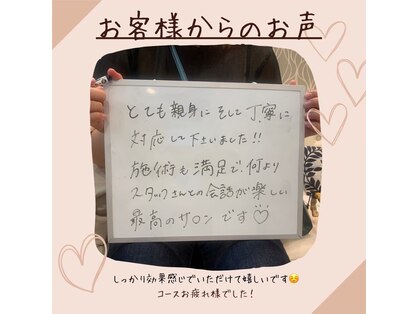 お客様からのお声
とても親身にそして丁寧に
対応して下さいました!!
施術も満足で何より
スタッフさんとの会話が楽しい
最高のサロンです♡
しっかり効果感じていただけて嬉しいです☺️
コースお疲れ様でした!